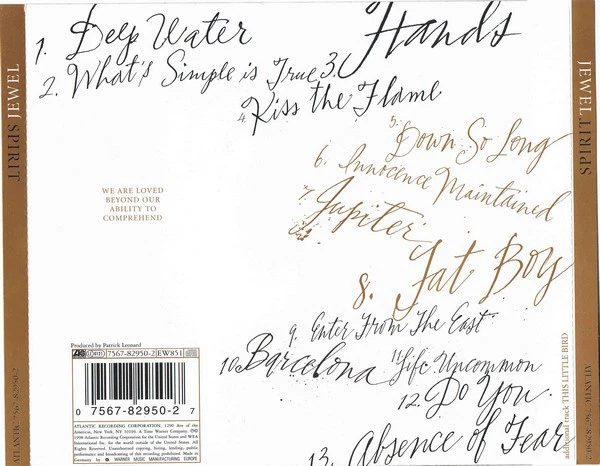 1. Deep Water
2. What's Simple is True
3. Hands
4. Kiss the Flame
5. Down So Long
6. Innocence Maintained
7. Jupiter
8. Fat Boy
9. Enter From The East
10. Barcelona
11. Life Uncommon
12. Do You
13. Absence of Fear
WE ARE LOVED
BEYOND OUR
ABILITY TO
COMPREHEND
Produced by Patrick Leonard
7567-82950-2 EW851
0 7567-82950-2 7
ATLANTIC RECORDING CORPORATION, 1290 Ave of the
Americas, New York, NY 10104. A Time Warner Company.
1998 Atlantic Recording Corporation for the United States and WEA
International Inc. for the world outside of the United States. All
Rights Reserved. Unauthorized copying, hiring, lending, public
performance and broadcasting of this recording prohibited. Made in
Germany by WARNER MUSIC MANUFACTURING EUROPE
SPIRIT JEWEL
ATLANTIC 7567-82950-2
JEWEL SPIRIT
ATLANTIC 7567-82950-2
additional track THIS LITTLE BIRD